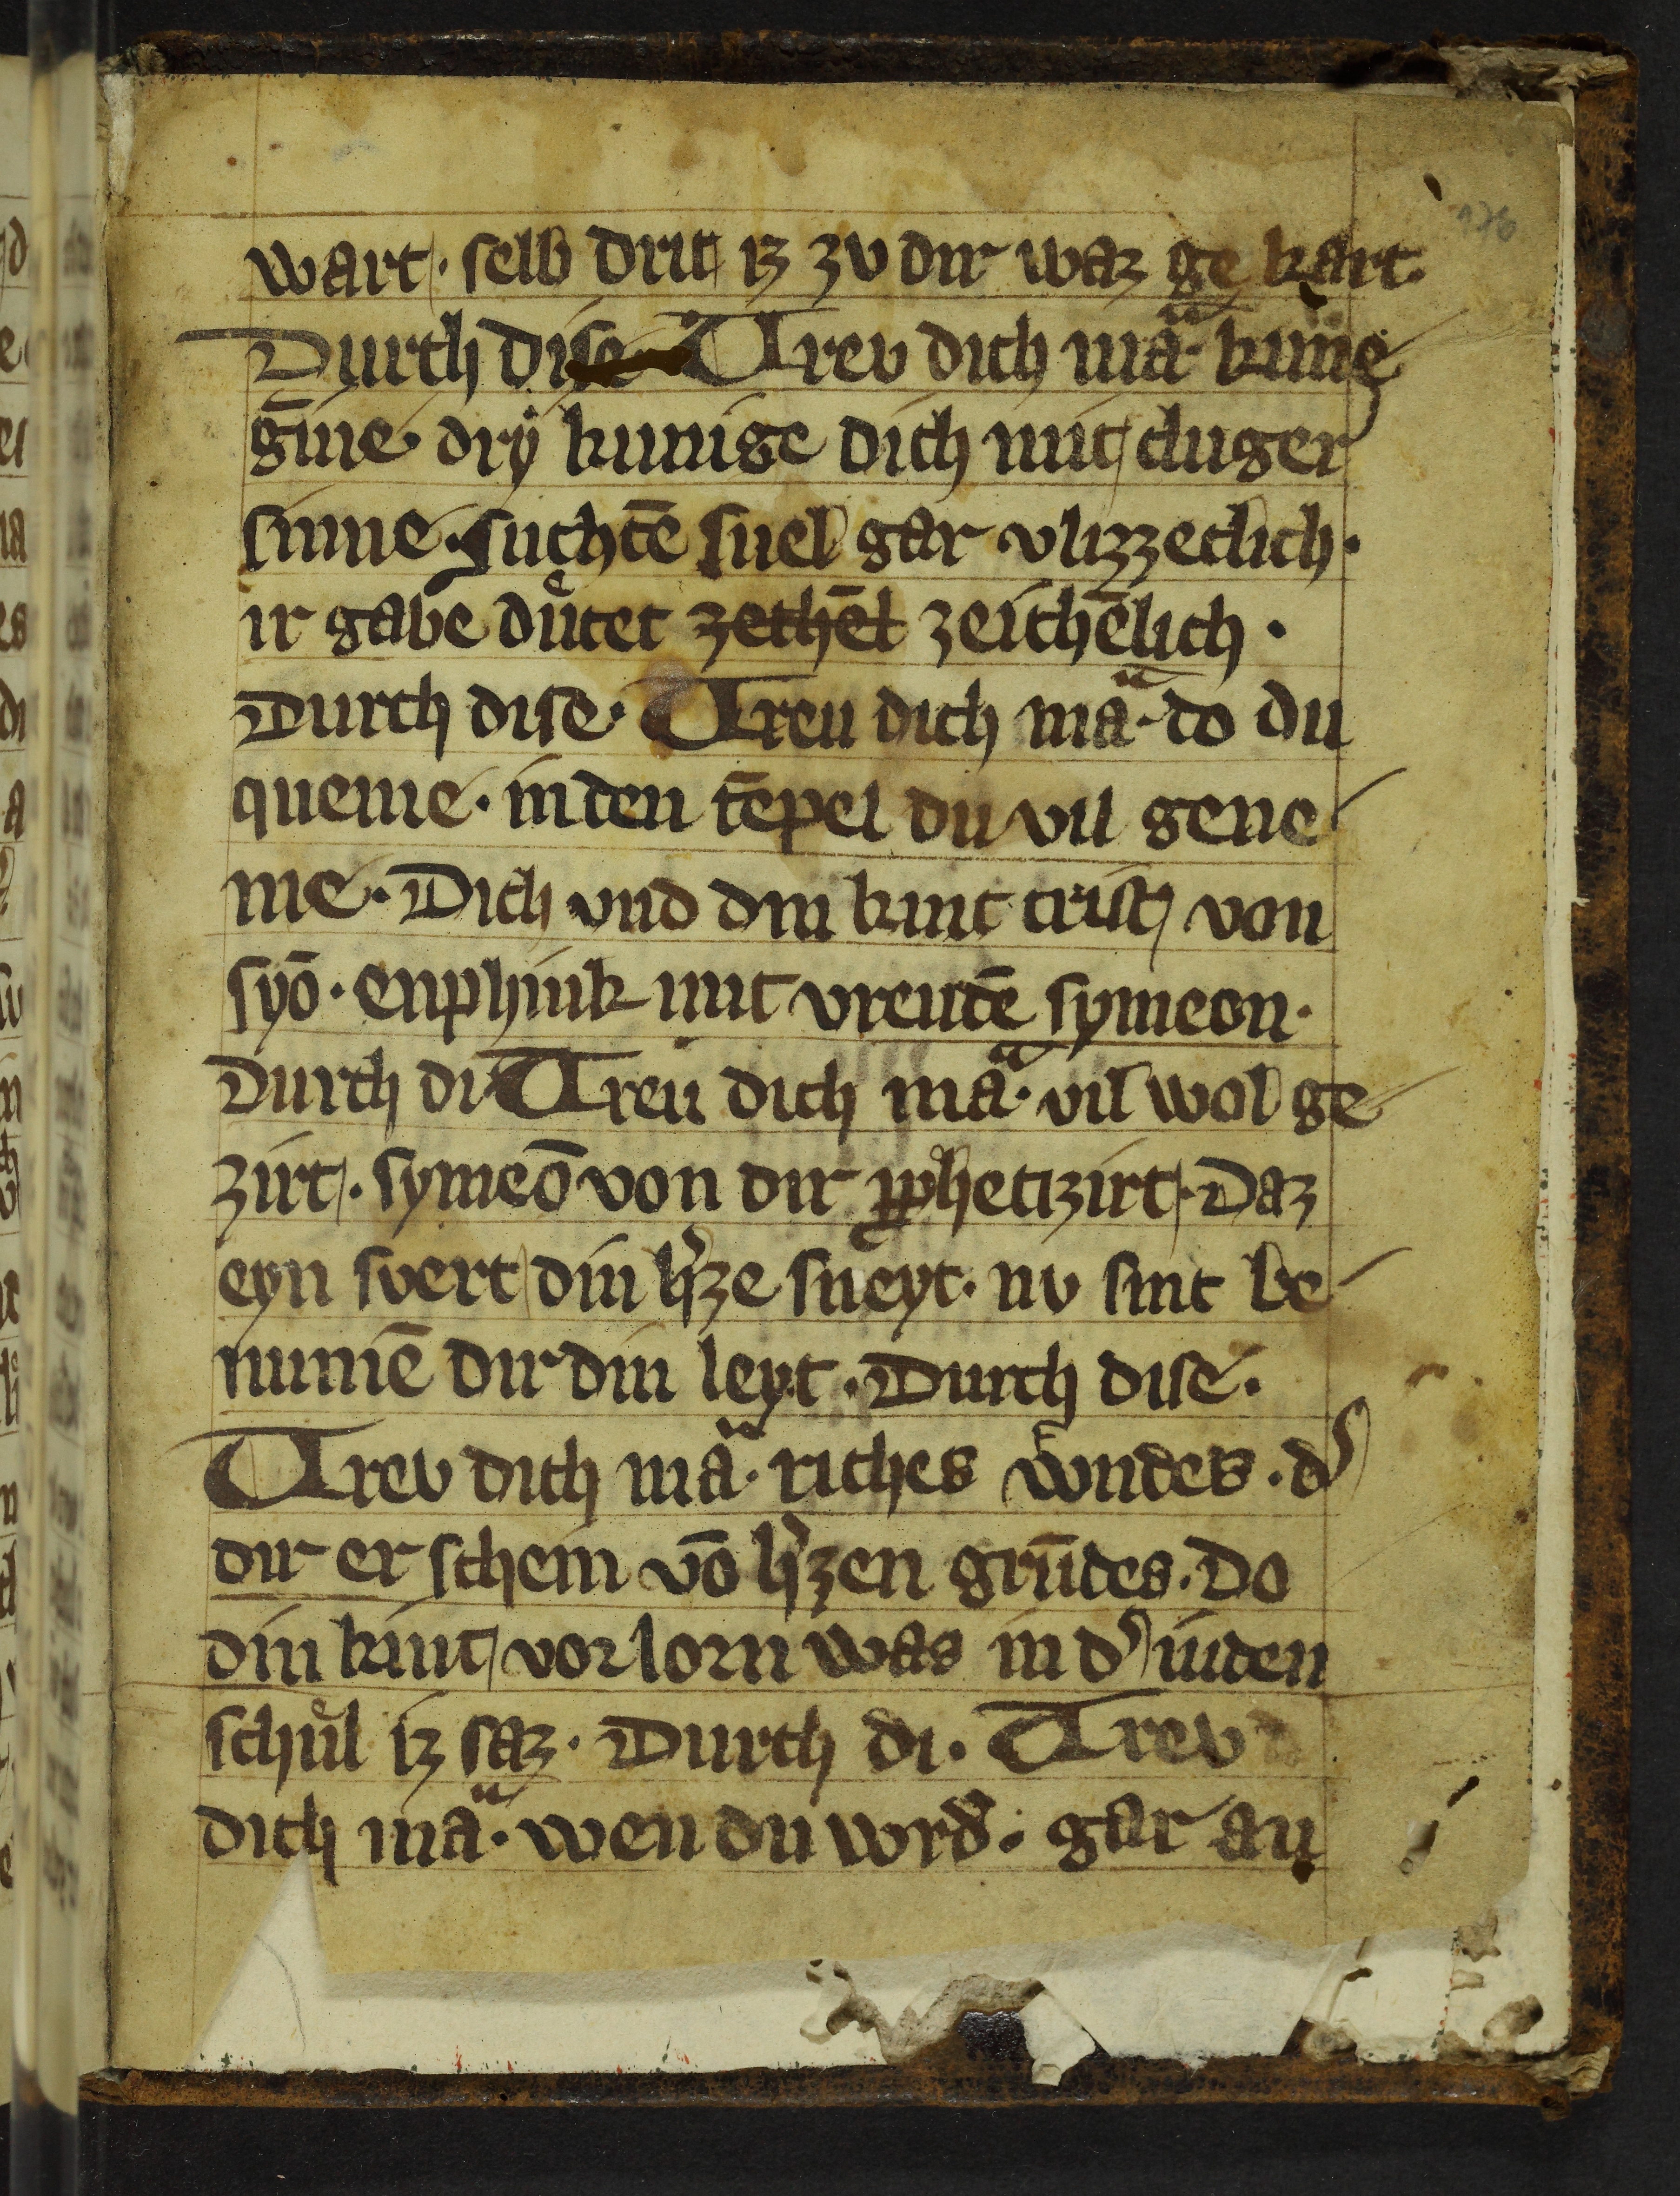 176
wart. selb drit iz zv dir waz ge kart.
Durch dise Vrev dich mā. kunē
gīne. dry kunige dich mit cluger
sinne. suchtē snel gar vlizzeclich.
ir gabē duͤtet zethēl zeichēlich.
Durch dise. Vreu dich mā. do du
queme. in den tēpel du vil gene
me. Dich vnd din kint trist von
syō. enphink mit vreudē symeon.
Durch di. Vreu dich mā. vil wol ge
zirt. symeō von dir ꝓphetizirt. Daz
eyn svert din hˀze sneyt. nv sint be
numē dir din leyt. Durch dise.
Vrev dich mā. riches wndes. dˀ
dir er schein vō hˀzen grūdes. Do
din kint vorlorn was in dˀ iuden
schuͦl iz saz. Durch di. Vrev
dich mā. wen du wrd. gar an